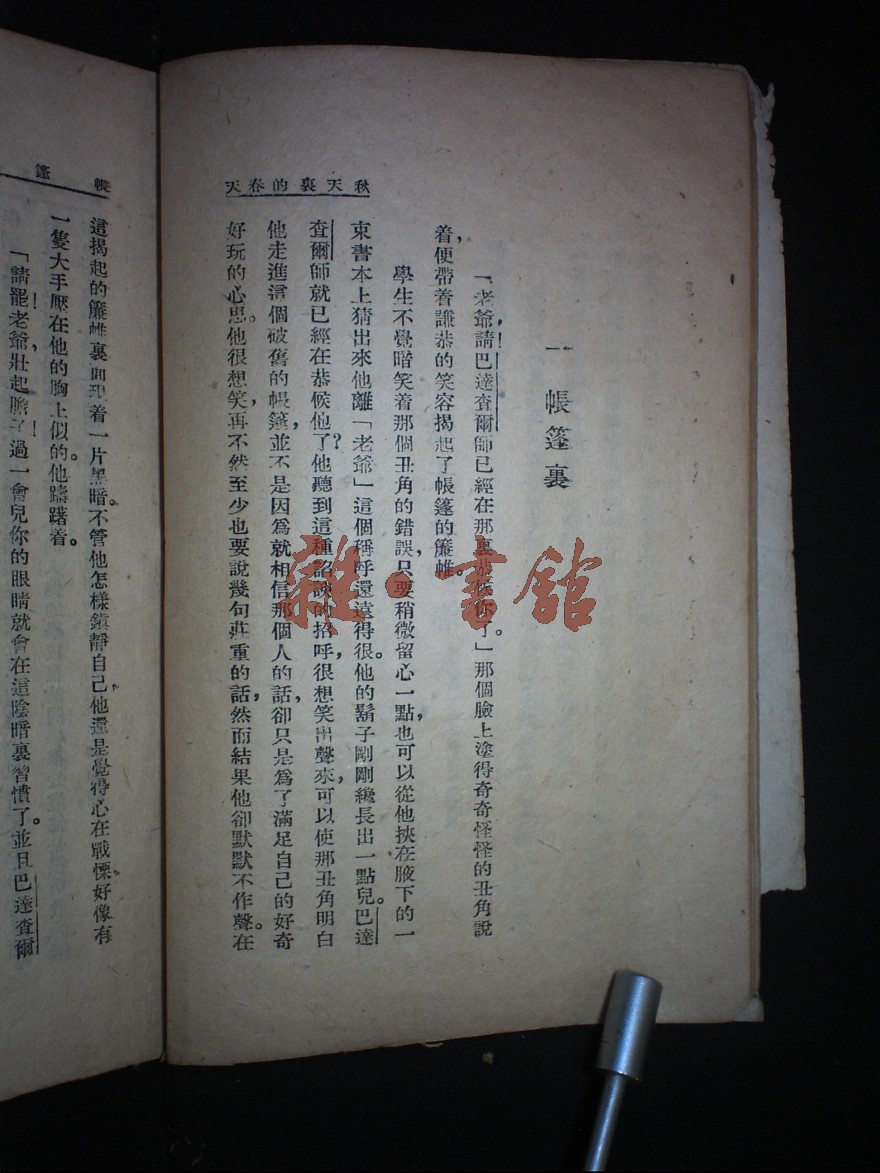 秋天裏的春天
一 帳篷裏
「老爺，請！巴達查爾師已經在那裏恭候你了。」那個臉上塗得奇奇怪怪的丑角說
着，便帶着謙恭的笑容揭起了帳篷的簾帷。
學生不覺暗笑着那個丑角的錯誤，只要稍微留心一點，也可以從他挾在腋下的一
束書本上猜出來他離「老爺」這個稱呼還遠得很。他的鬍子剛剛纔長出一點兒。巴達
查爾師就已經在恭候他了？他聽到這種諂諛的招呼，很想笑出聲來，可以使那丑角明白
他走進這個破舊的帳篷，並不是因爲就相信那個人的話，卻只是爲了滿足自己的好奇
好玩的心思。他很想笑，再不然至少也要說幾句莊重的話，然而結果他卻默默不作聲。在
帳篷
這揭起的簾帷裏面現着一片黑暗。不管他怎樣鎮靜自己，他還是覺得心在戰慄，好像有
一隻大手壓在他的胸上似的。他躊躇着。
「請罷！老爺，壯起膽子！過一會兒你的眼睛就會在這陰暗裏習慣了。並且巴達查爾
雜·書館